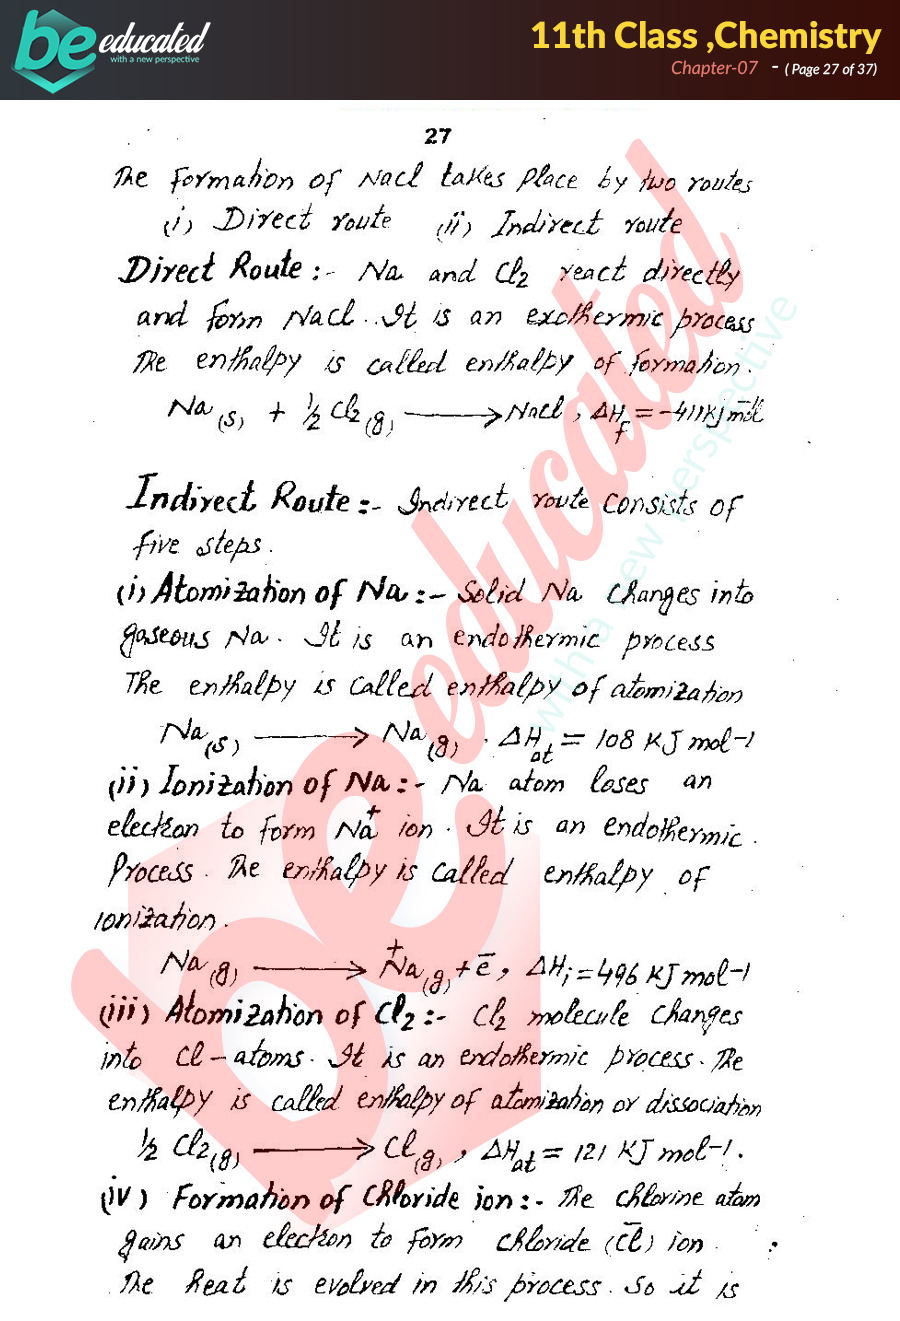 be educated
with a new perspective
11th Class ,Chemistry
Chapter-07 - ( Page 27 of 37)
27
The formation of NaCl takes place by two routes
(i) Direct route (ii) Indirect route
Direct Route :- Na and Cl₂ react directly
and form NaCl. It is an exothermic process
The enthalpy is called enthalpy of formation.
Na(s) + ½ Cl₂(g) ⟶ NaCl , ΔHf = -411 KJ mol⁻
Indirect Route :- Indirect route consists of
five steps.
(i) Atomization of Na :- Solid Na changes into
gaseous Na. It is an endothermic process
The enthalpy is called enthalpy of atomization
Na(s) ⟶ Na(g) . ΔHat = 108 KJ mol-1
(ii) Ionization of Na :- Na atom loses an
electron to form Na⁺ ion. It is an endothermic.
Process. The enthalpy is called enthalpy of
ionization.
Na(g) ⟶ Na⁺(g) + e⁻ , ΔHi = 496 KJ mol-1
(iii) Atomization of Cl₂ :- Cl₂ molecule changes
into Cl-atoms. It is an endothermic process. The
enthalpy is called enthalpy of atomization or dissociation
½ Cl₂(g) ⟶ Cl(g) , ΔHat = 121 KJ mol-1.
(iv) Formation of Chloride ion :- The chlorine atom
gains an electron to form chloride (Cl⁻) ion.
The heat is evolved in this process. So it is
be educated
with a new perspective